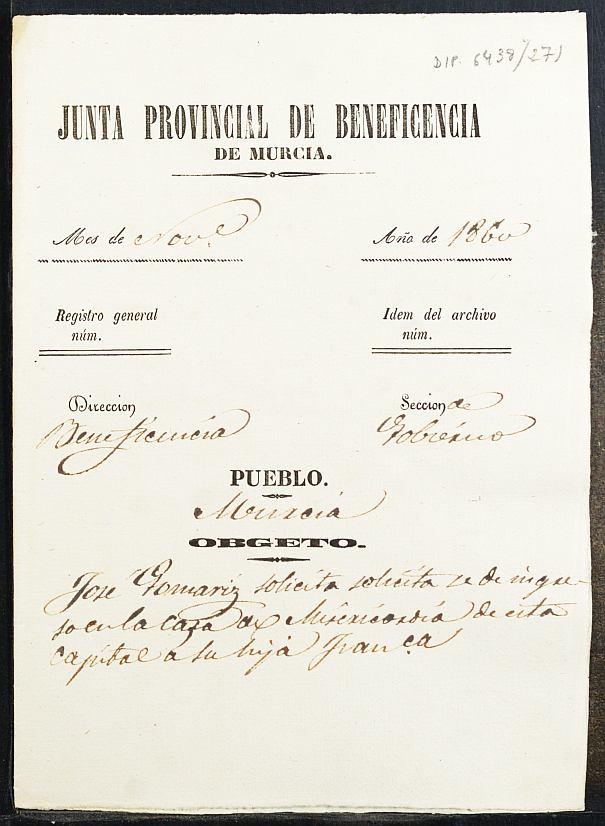 DIP. 6438/27)
JUNTA PROVINCIAL DE BENEFICENCIA
DE MURCIA.
Mes de Nov.e
Año de 1860
Registro general
núm.
Idem del archivo
núm.
Direccion
Beneficencia
Seccion de
Gobierno
PUEBLO.
Murcia
OBGETO.
José Gomariz solicita solicita se de ingre-
so en la Casa de Misericordia de esta
Capital a su hija Fran.ca